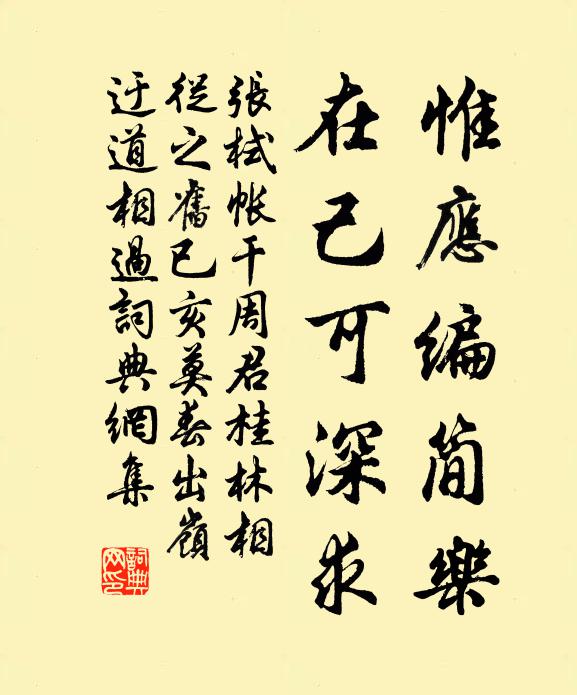 惟應編簡樂
在己可深求
張栻帐干周君桂林相
從之舊己亥莫春出嶺
迂道相過詞典網集
詞典网印